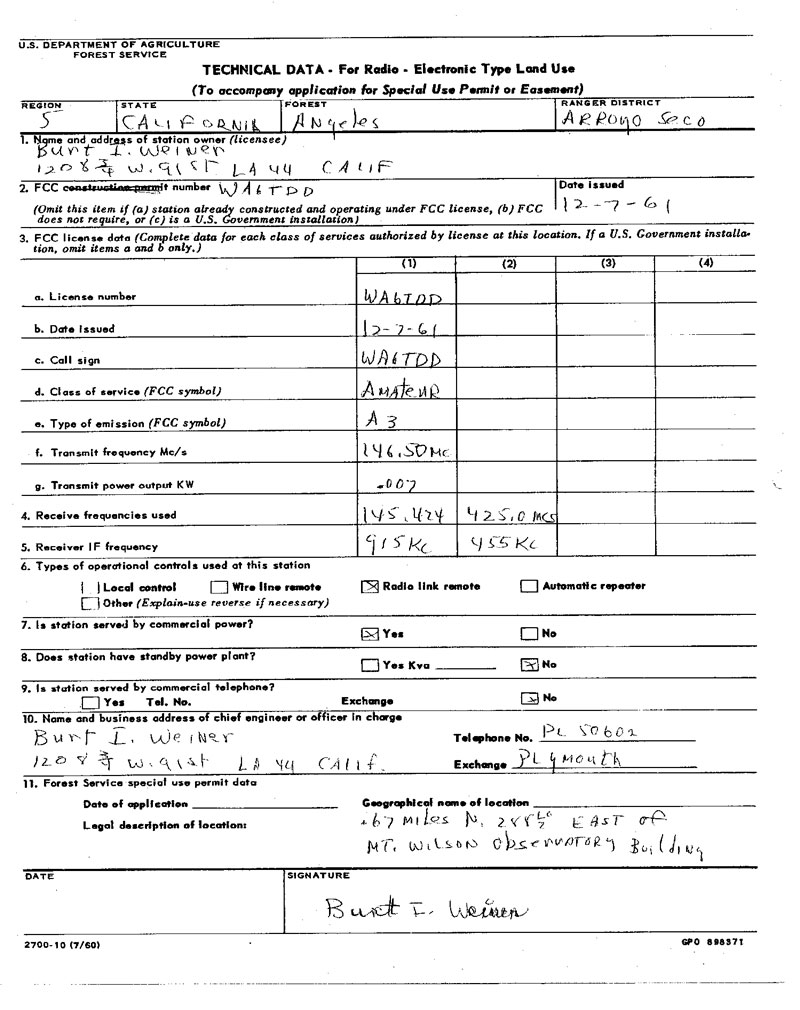 U.S. DEPARTMENT OF AGRICULTURE
FOREST SERVICE
TECHNICAL DATA - For Radio - Electronic Type Land Use
(To accompany application for Special Use Permit or Easement)
REGION STATE FOREST RANGER DISTRICT
5 CALIFORNIA Angeles ARROYO Seco
1. Name and address of station owner (licensee)
Burt I. Weiner
1208 3/4 W. 91ST LA 44 CALIF
2. FCC construction permit number WA6TDD Date issued
12-7-61
(Omit this item if (a) station already constructed and operating under FCC license, (b) FCC
does not require, or (c) is a U.S. Government installation)
3. FCC license data (Complete data for each class of services authorized by license at this location. If a U.S. Government installa-
tion, omit items a and b only.)
(1) (2) (3) (4)
a. License number WA6TDD
b. Date Issued 12-7-61
c. Call sign WA6TDD
d. Class of service (FCC symbol) AMATEUR
e. Type of emission (FCC symbol) A3
f. Transmit frequency Mc/s 146.50 MC
g. Transmit power output KW .007
4. Receive frequencies used 145.424 425.0 MCS
5. Receiver IF frequency 915 KC 455 KC
6. Types of operational controls used at this station
Local control Wire line remote Radio link remote Automatic repeater
Other (Explain-use reverse if necessary)
7. Is station served by commercial power?
Yes No
8. Does station have standby power plant?
Yes Kva No
9. Is station served by commercial telephone?
Yes Tel. No. Exchange No
10. Name and business address of chief engineer or officer in charge
Burt I. Weiner Telephone No. PL 50602
1208 3/4 W. 91st LA 44 CALif. Exchange PLYMOUTH
11. Forest Service special use permit data
Date of application Geographical name of location
Legal description of location: .67 MILES N. EAST OF
MT. WILSON OBSERVATORY Building
DATE SIGNATURE
Burt I. Weiner
2700-10 (7/60) GPO 898371